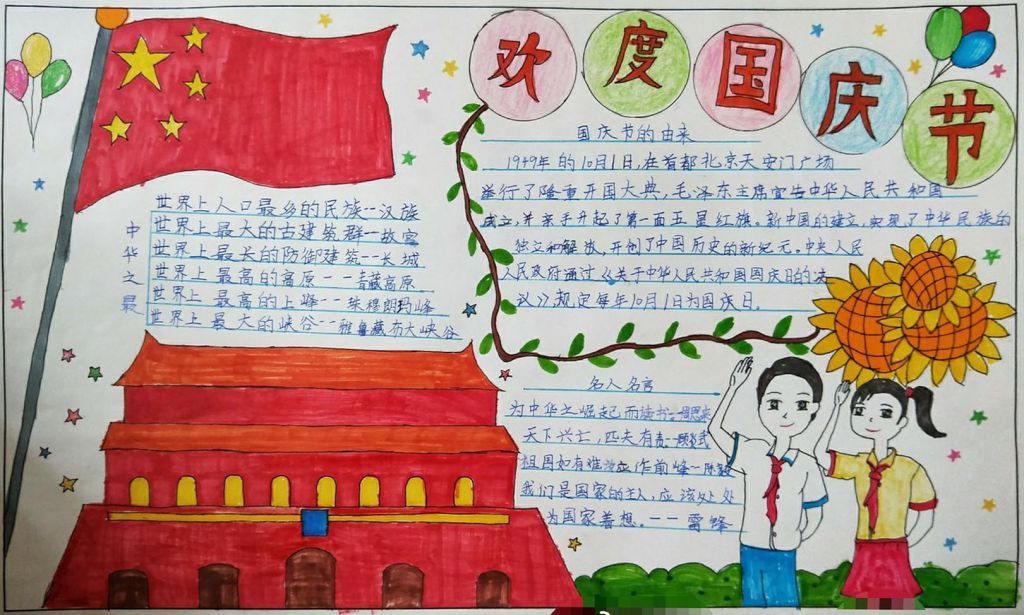 欢度国庆节
中华之最
世界上人口最多的民族--汉族
世界上最大的古建筑群--故宫
世界上最长的防御建筑--长城
世界上最高的高原--青藏高原
世界上最高的上峰--珠穆朗玛峰
世界上最大的峡谷--雅鲁藏布大峡谷
国庆节的由来
1949年的10月1日,在首都北京天安门广场
举行了隆重开国大典,毛泽东主席宣告中华人民共和国
成立,并亲手升起了第一面五星红旗。新中国的建立,实现了中华民族的
独立和解放,开创了中国历史的新纪元。中央人民
人民政府通过《关于中华人民共和国国庆日的决
议》规定每年10月1日为国庆日。
名人名言
为中华之崛起而读书--周恩来
天下兴亡,匹夫有责--顾炎武
祖国如有难 应作前峰--陈毅
我们是国家的主人,应该处处
为国家着想。--雷锋